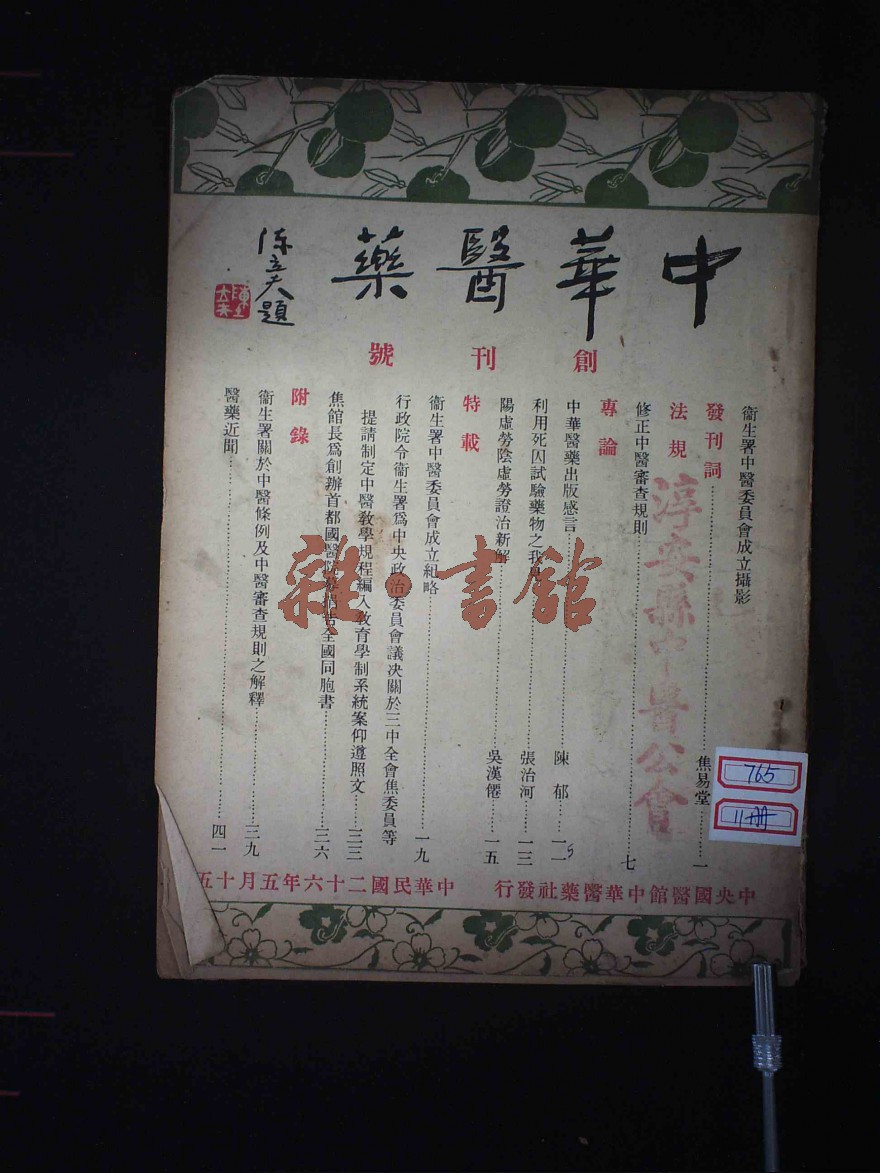 中華醫藥
陳立夫題
創刊號
衞生署中醫委員會成立攝影
發刊詞⋯⋯焦易堂⋯一
法規
修正中醫審查規則⋯⋯七
專論
中華醫藥出版感言⋯⋯陳郁⋯一一
利用死囚試驗藥物之我見⋯⋯張治河⋯一三
陽虛勞陰虛勞證治新解⋯⋯吳漢僊⋯一五
特載
衞生署中醫委員會成立紀略⋯⋯一九
行政院令衞生署爲中央政治委員會議决關於三中全會焦委員等
提請制定中醫敎學規程編入敎育學制系統案仰遵照文⋯⋯三三
焦館長爲創辦首都國醫院募捐告全國同胞書⋯⋯三六
附錄
衞生署關於中醫條例及中醫審查規則之解釋⋯⋯三九
醫藥近聞⋯⋯四一
淳安縣中醫公會
雜·書館
765
11册
中央國醫館中華醫藥社發行
中華民國二十六年五月十五